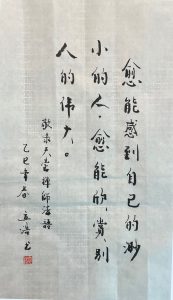 愈能感到自己的渺
小的人，愈能的賞别
人的伟大。
敬录天童禅師法語
乙巳年春 孟涛书